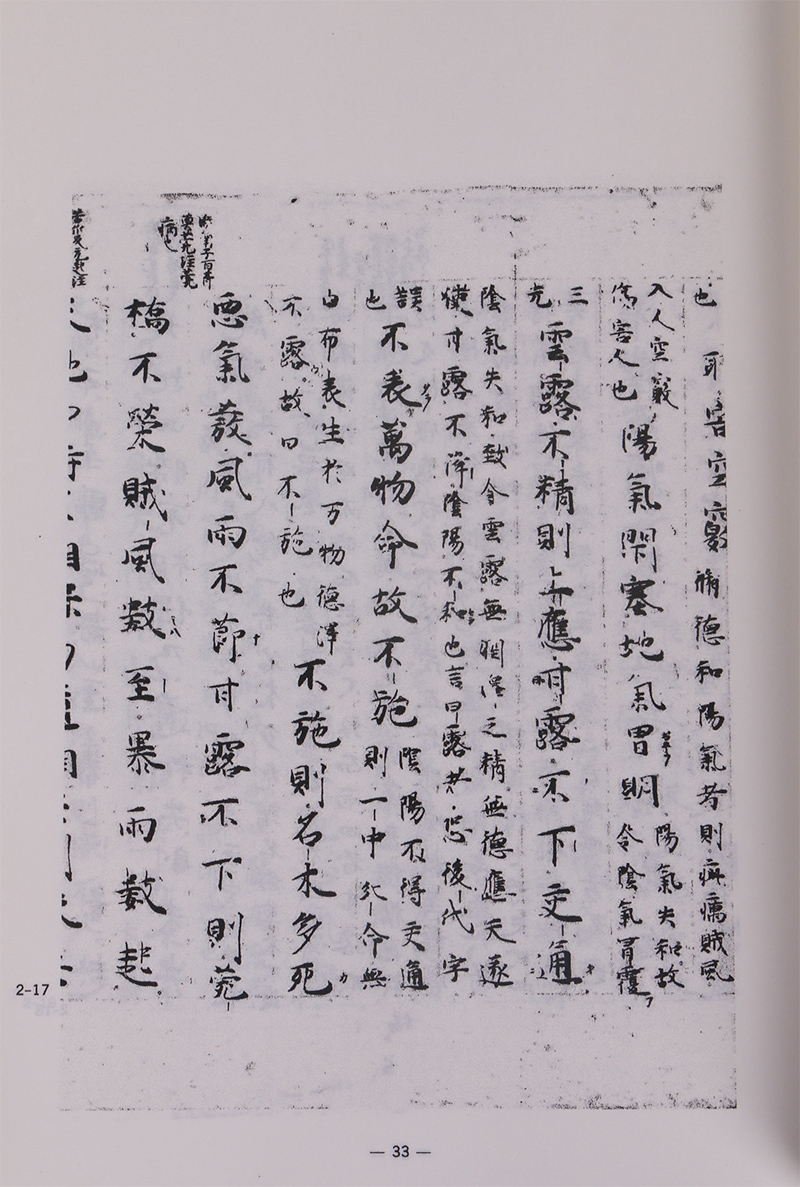 也 耶害空竅 脩德和陽氣者則疵癘賊風
入人空竅
傷害人也
陽氣閇塞地氣冒明
陽氣失和故
令陰氣冒覆
三
光
雲露不精則上應甘露不下交通
陰氣失和致令雲露無潤澤之精無德應天遂
使甘露不降陰陽不和也言曰露者恐後代字
誤
也
不表萬物命故不施
陰陽不得交通
則一中死命無
由布表生於万物德澤
不露故曰不施也
不施則名木多死
惡氣發風雨不節甘露不下則菀
槁不榮賊風數至暴雨數起
2-17
— 33 —